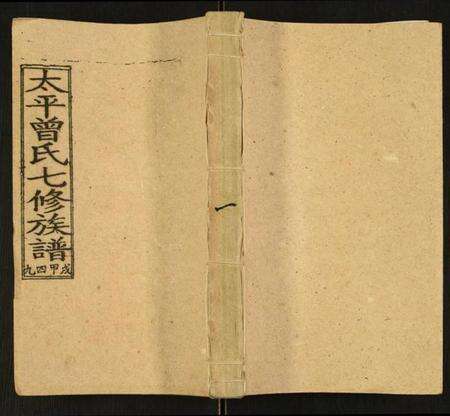 太平曾氏七修族譜
戍甲四九
一